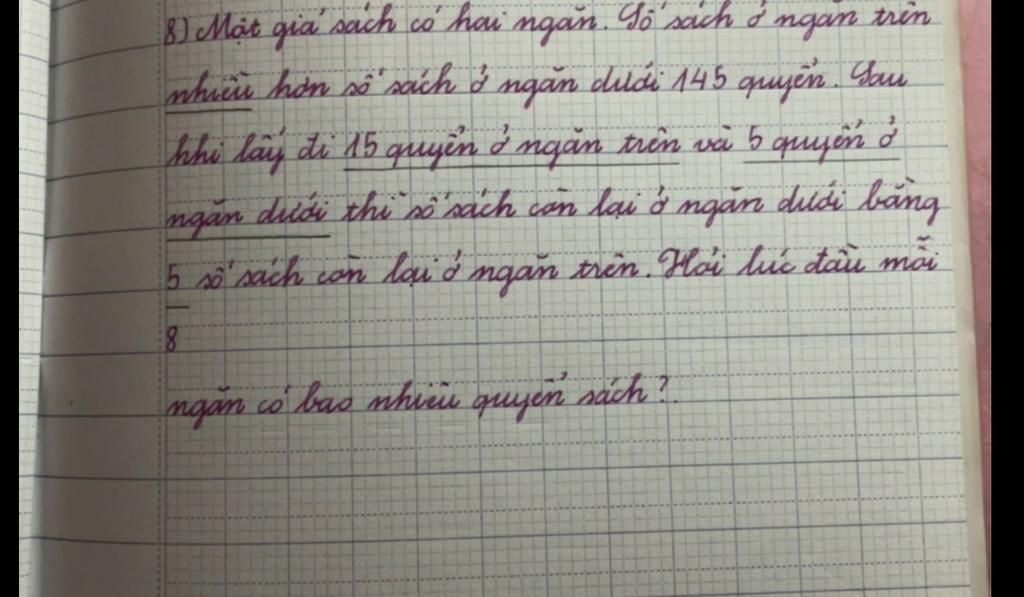 8) Một giá sách có hai ngăn. Số sách ở ngăn trên
nhiều hơn số sách ở ngăn dưới 145 quyển. Sau
khi lấy đi 15 quyển ở ngăn trên và 5 quyển ở
ngăn dưới thì số sách còn lại ở ngăn dưới bằng
5/8 số sách còn lại ở ngăn trên. Hỏi lúc đầu mỗi
ngăn có bao nhiêu quyển sách?